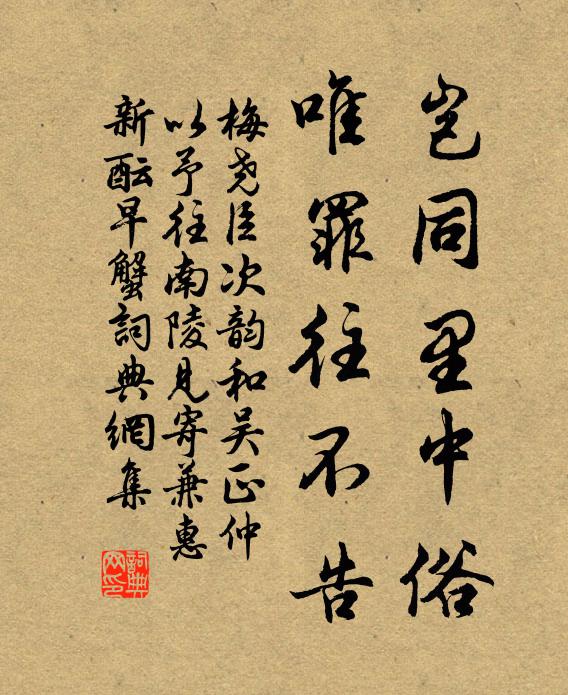 岂同里中俗
唯罪往不告
梅尧臣次韵和吴正仲
以予往南陵见寄兼惠
新酝早蟹詞典網集
詞典
网印